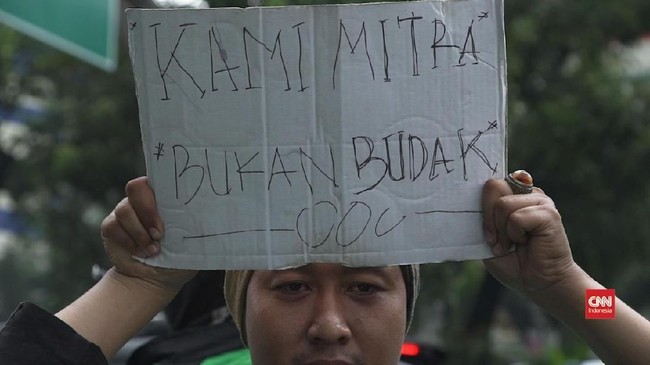 "KAMI MITRA"
"BUKAN BUDAK"
CNN
Indonesia